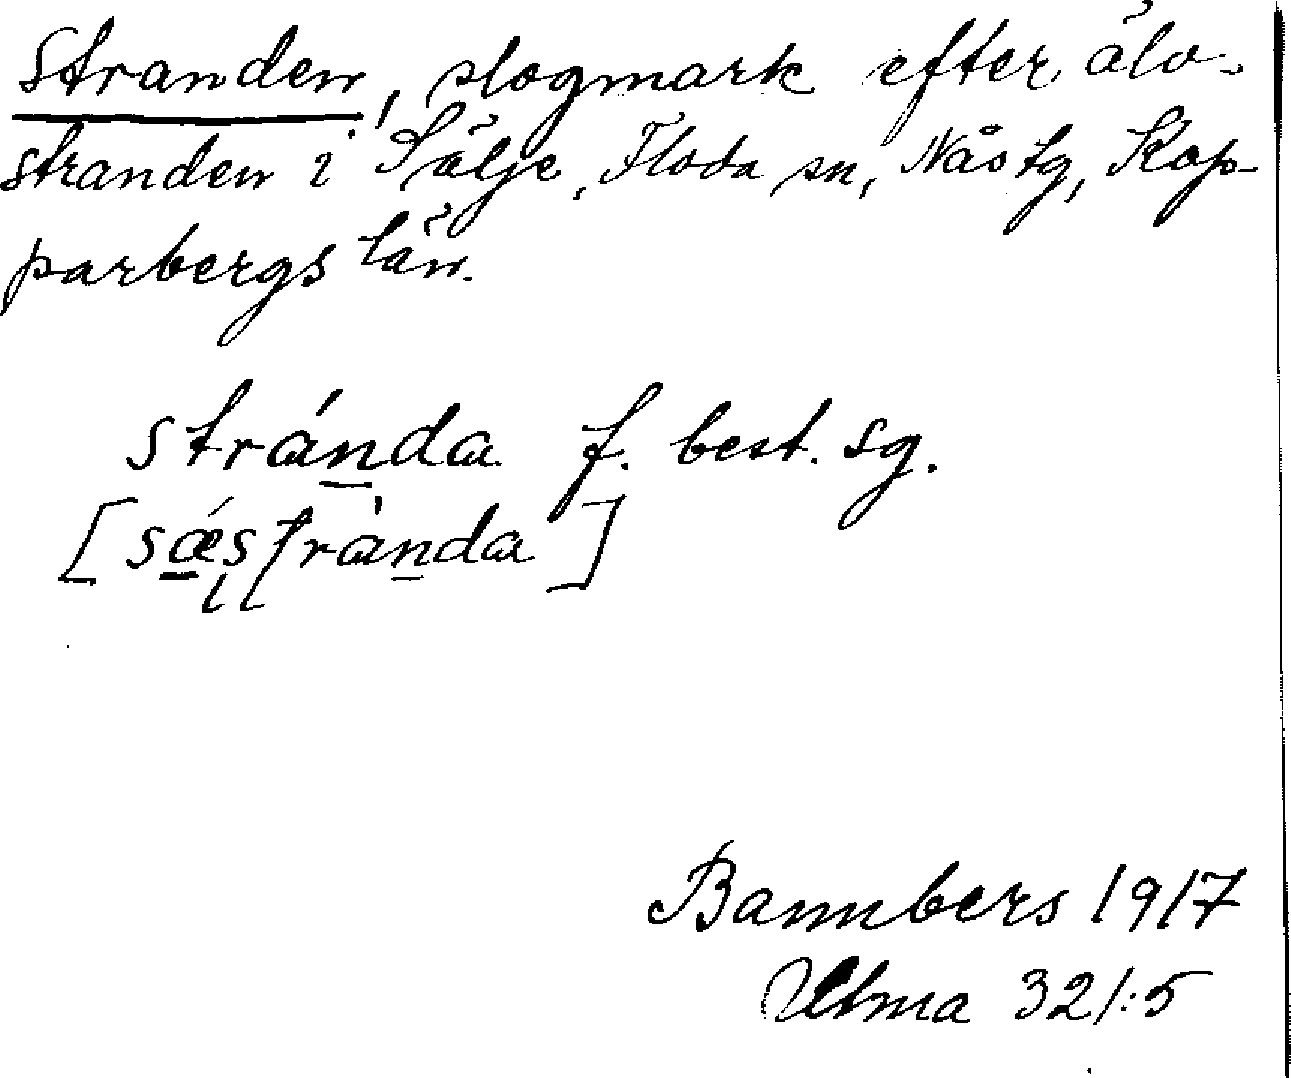 Stranden, slogmark efter älv-
stranden i Sälje, Floda sn, Nås tg, Kop-
parbergs län.
stránda f. best. sg.
[sǽstrànda]
Bannbers 1917
Ulma 321:5